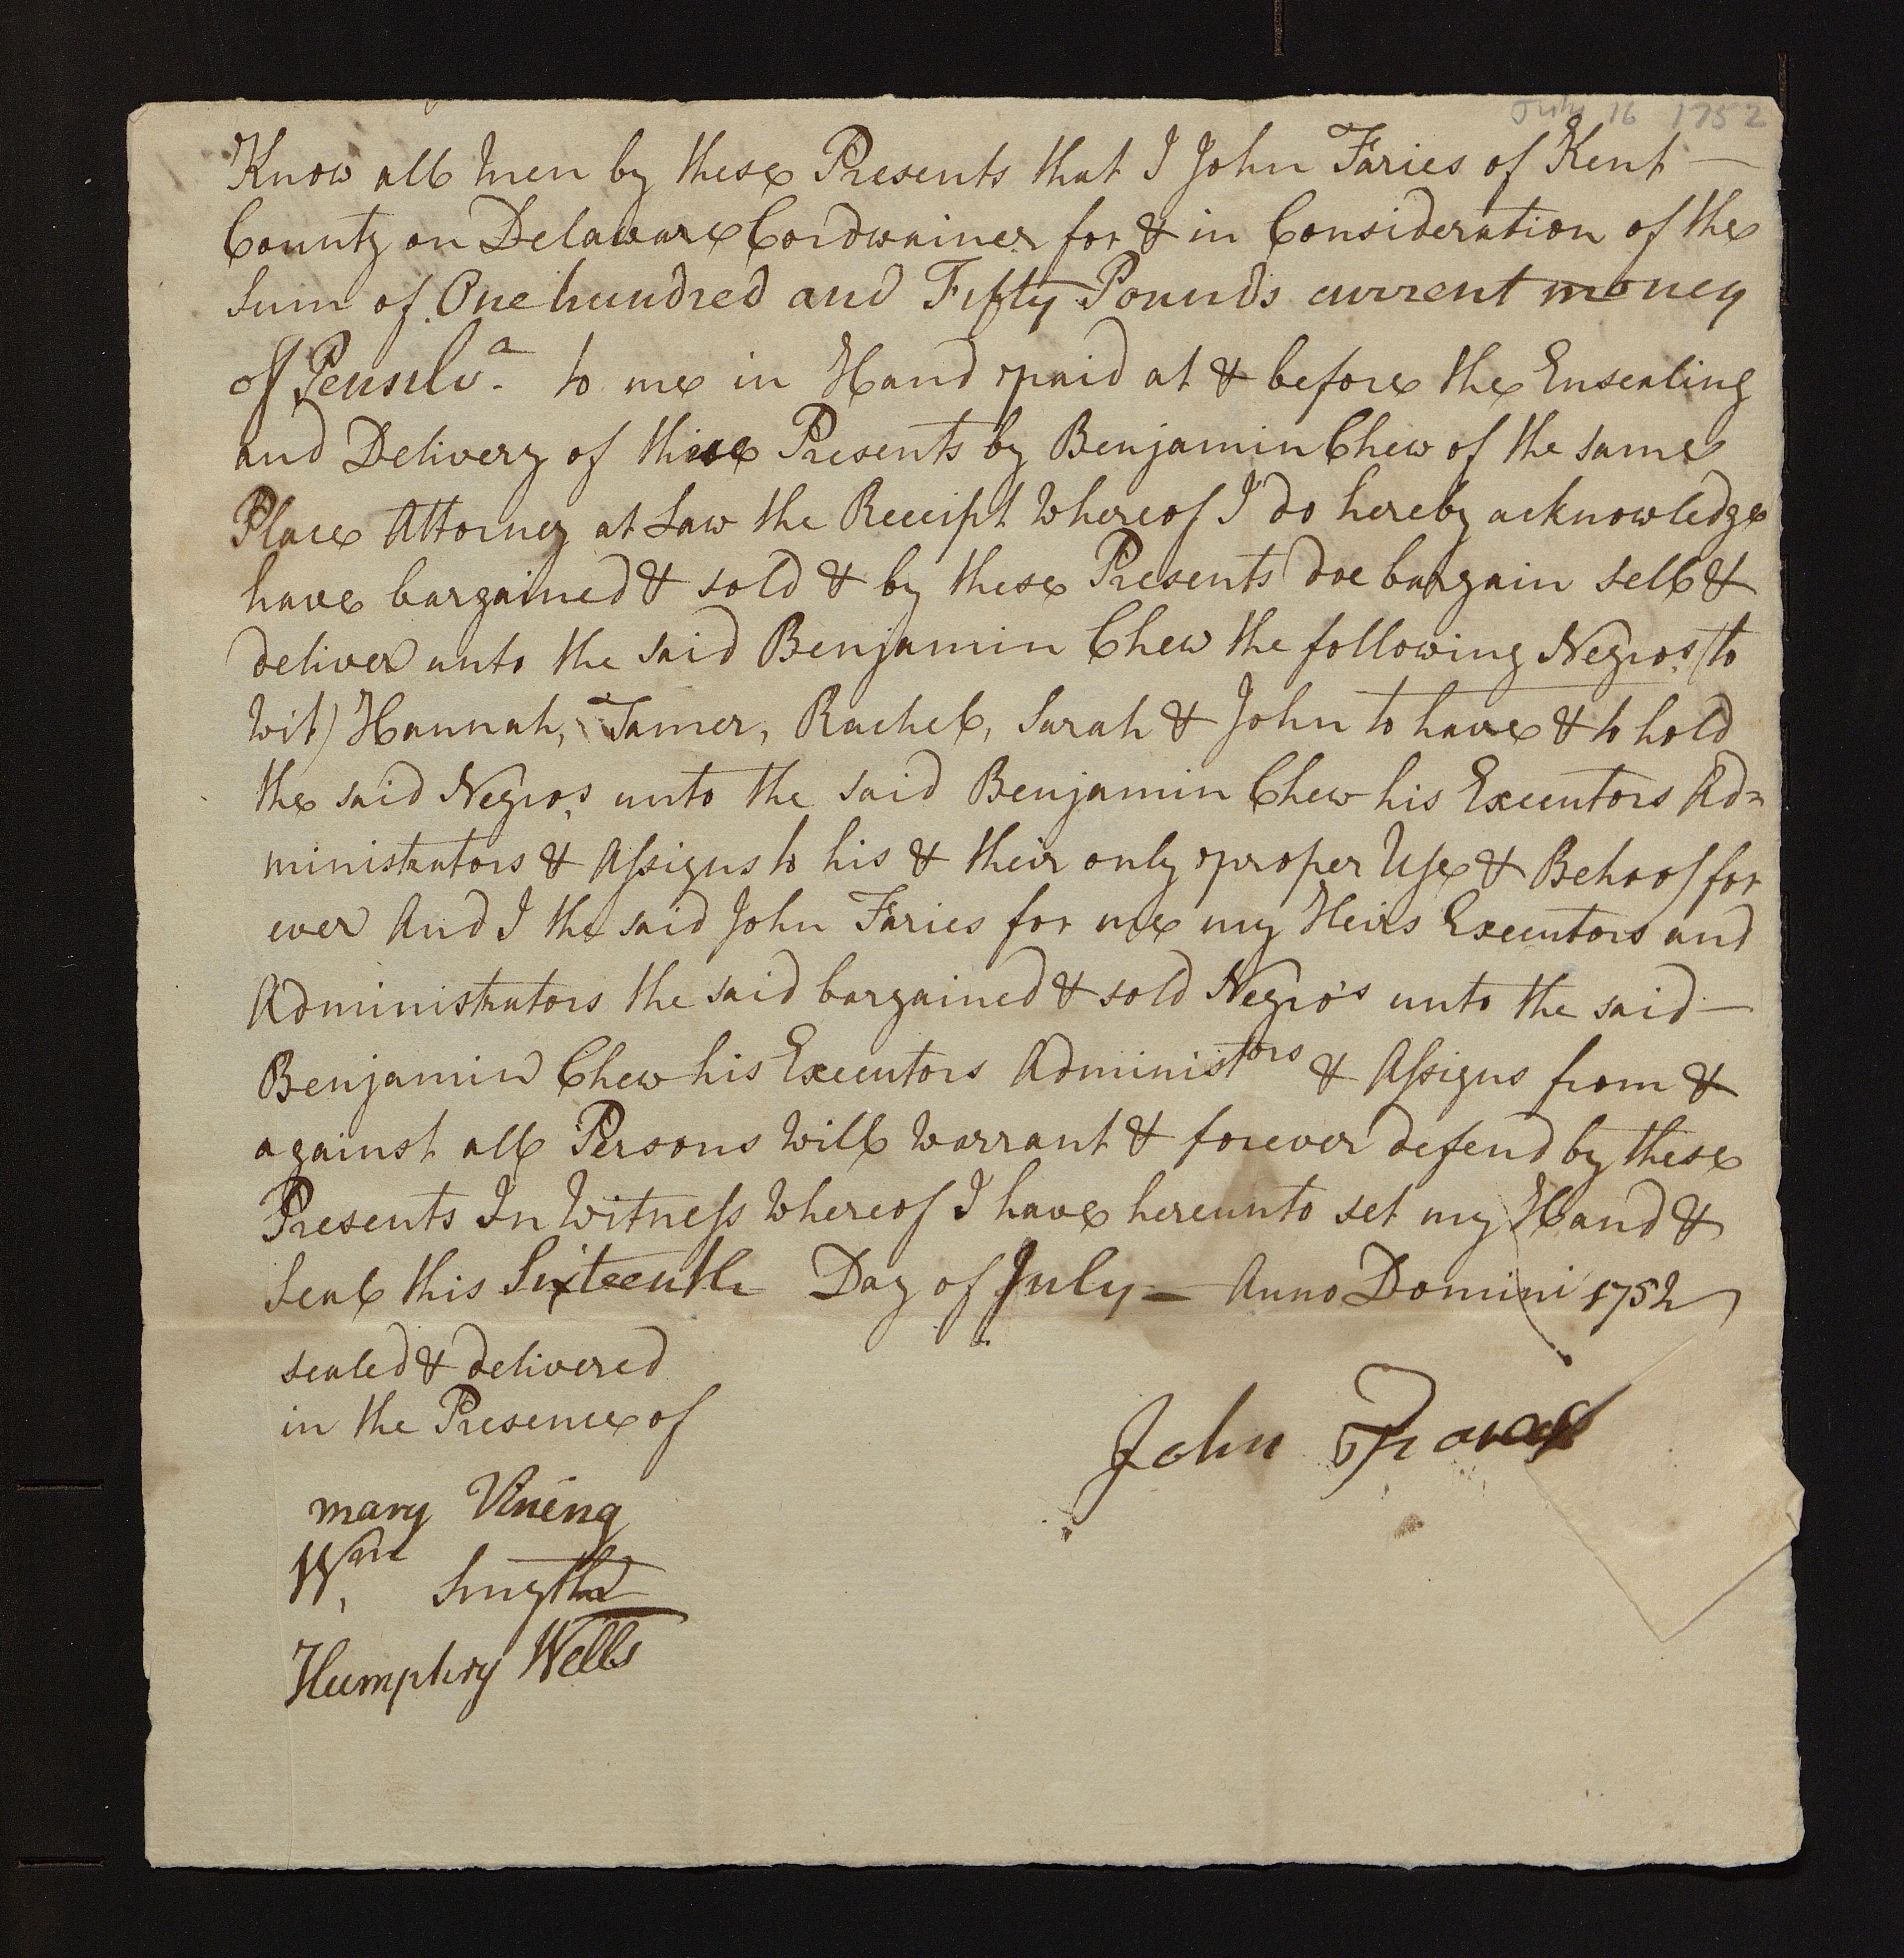 July 16 1752
Know all Men by these Presents that I John Faries of Kent —
County on Delaware Cordwainer for & in Consideration of the
Sum of One hundred and Fifty Pounds current money
of Pensilv.a to me in Hand paid at & before the Ensealing
and Delivery of these Presents by Benjamin Chew of the same
Place Attorney at Law the Receipt Whereof I do hereby acknowledge
have bargained & sold & by these Presents doe bargain sell &
deliver unto the said Benjamin Chew the following Negros (to
Wit) Hannah, Tamer, Rachel, Sarah & John to have & to hold
the said Negros unto the said Benjamin Chew his Executors Ad=
ministrators & Assigns to his & their only proper Use & Behoof for
ever And I the said John Faries for me my Heirs Executors and
Administrators the said bargained & sold Negro's unto the said —
Benjamin Chew his Executors Administors & Assigns from &
against all Persons Will Warrant & forever defend by these
Presents In Witness Whereof I have hereunto set my Hand &
Seal this Sixteenth Day of July — Anno Domini 1752
sealed & delivered
in the Presence of
John
mary Vining
Wm. Smythe
Humphry Wells